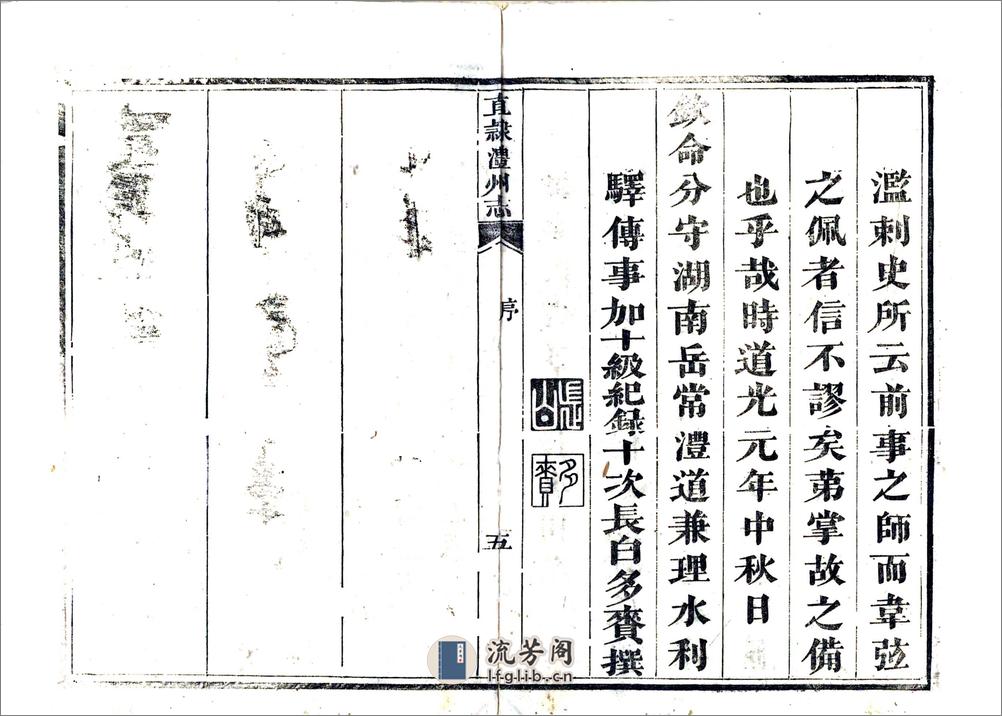 濫刺史所云前事之師而韋弦
之佩者信不謬矣苐掌故之備
也乎哉時道光元年中秋日
欽命分守湖南岳常澧道兼理水利
驛傳事加十級紀錄十次長白多賚撰
多賚
直隸澧州志
序
五
流芳阁
lfglib.cn